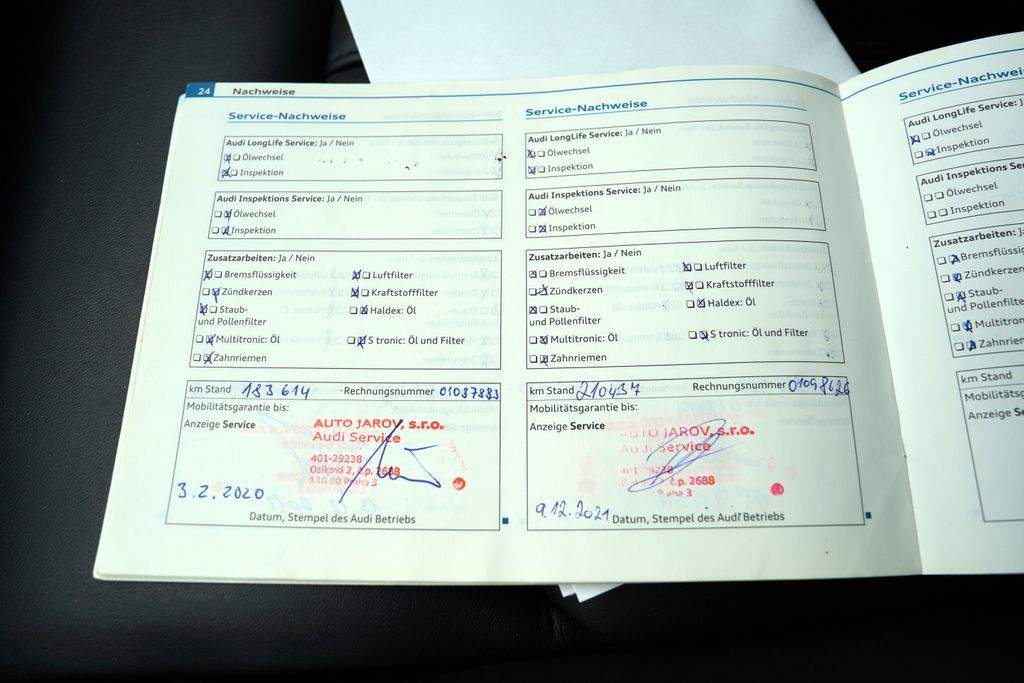 24 Nachweise
Service-Nachweise
Audi LongLife Service: Ja / Nein
Ölwechsel
Inspektion
Audi Inspektions Service: Ja / Nein
Ölwechsel
Inspektion
Zusatzarbeiten: Ja / Nein
Bremsflüssigkeit Luftfilter
Zündkerzen Kraftstofffilter
Staub- Haldex: Öl
und Pollenfilter
Multitronic: Öl S tronic: Öl und Filter
Zahnriemen
km Stand 183 614 Rechnungsnummer 01087883
Mobilitätsgarantie bis:
Anzeige Service
AUTO JAROV, s.r.o.
Audi Service
401-29238
Osiková 2, č.p. 2688
130 00 Praha 3
3.2.2020
Datum, Stempel des Audi Betriebs
Service-Nachweise
Audi LongLife Service: Ja / Nein
Ölwechsel
Inspektion
Audi Inspektions Service: Ja / Nein
Ölwechsel
Inspektion
Zusatzarbeiten: Ja / Nein
Bremsflüssigkeit Luftfilter
Zündkerzen Kraftstofffilter
Staub- Haldex: Öl
und Pollenfilter
Multitronic: Öl S tronic: Öl und Filter
Zahnriemen
km Stand 210437 Rechnungsnummer 01098626
Mobilitätsgarantie bis:
Anzeige Service
AUTO JAROV, s.r.o.
Audi Service
401-29238
2, č.p. 2688
Praha 3
9.12.2021
Datum, Stempel des Audi Betriebs
Service-Nachwei
Audi LongLife Service: J
Ölwechsel
Inspektion
Audi Inspektions Service
Ölwechsel
Inspektion
Zusatzarbeiten: J
Bremsflüssig
Zündkerzen
Staub-
und Pollenfilte
Multitroni
Zahnrieme
km Stand
Mobilitätsg
Anzeige Se